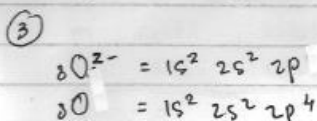 ③
₈O²⁻ = 1s² 2s² 2p
₈O = 1s² 2s² 2p⁴